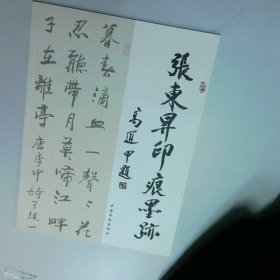 張東昇印痕墨跡
高運甲題
暮春滴血一聲聲花
忍聽帶月莫啼江畔
子在離亭 唐李中 詩子規一